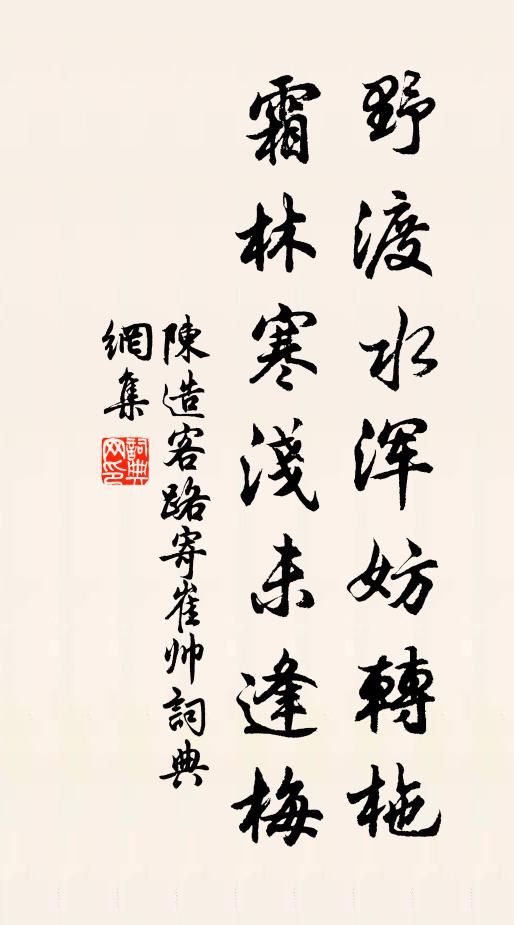 野渡水浑妨轉柂
霜林寒淺未逢梅
陳造客路寄崔帅詞典
網集
詞典網印